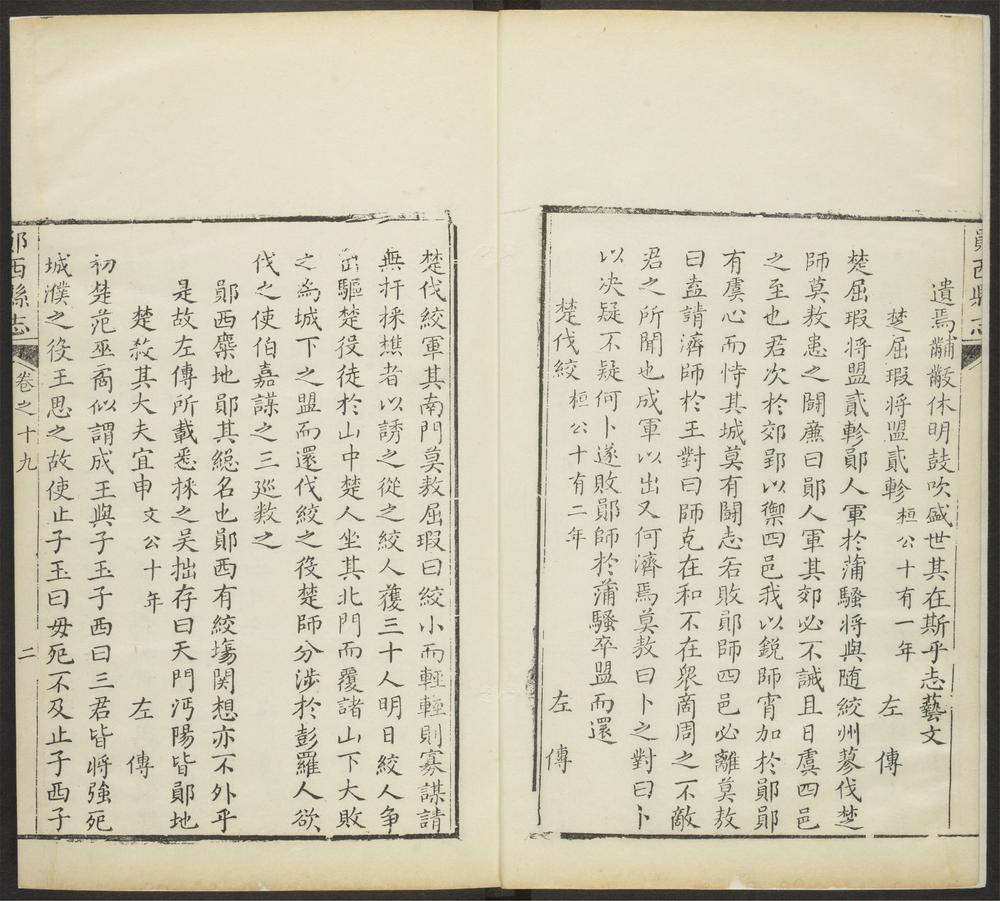 鄖西縣志
遺焉黼黻休明鼓吹盛世其在斯乎志藝文
楚屈瑕將盟貳軫 桓公十有一年 左傳
楚屈瑕將盟貳軫鄖人軍於蒲騷將與随絞州蓼伐楚
師莫敖患之鬬廉曰鄖人軍其郊必不誡且日虞四邑
之至也君次於郊郢以禦四邑我以鋭師宵加於鄖鄖
有虞心而恃其城莫有鬬志若敗鄖師四邑必離莫敖
曰盍請濟師於王對曰師克在和不在衆商周之不敵
君之所聞也成軍以出又何濟焉莫敖曰卜之對曰卜
以决疑不疑何卜遂敗鄖師於蒲騷卒盟而還
楚伐絞 桓公十有二年 左傳
楚伐絞軍其南門莫敖屈瑕曰絞小而輕輕則寡謀請
無扞採樵者以誘之從之絞人獲三十人明日絞人争
出驅楚役徒於山中楚人坐其北門而覆諸山下大敗
之為城下之盟而還伐絞之役楚師分涉於彭羅人欲
伐之使伯嘉謀之三巡数之
鄖西麋地鄖其總名也鄖西有絞塲関想亦不外乎
是故左傳所載悉採之吴拙存曰天門沔陽皆鄖地
楚殺其大夫宜申 文公十年 左傳
初楚范巫矞似謂成王與子玉子西曰三君皆將強死
城濮之役王思之故使止子玉曰毋死不及止子西子
鄖西縣志 卷之十九 二